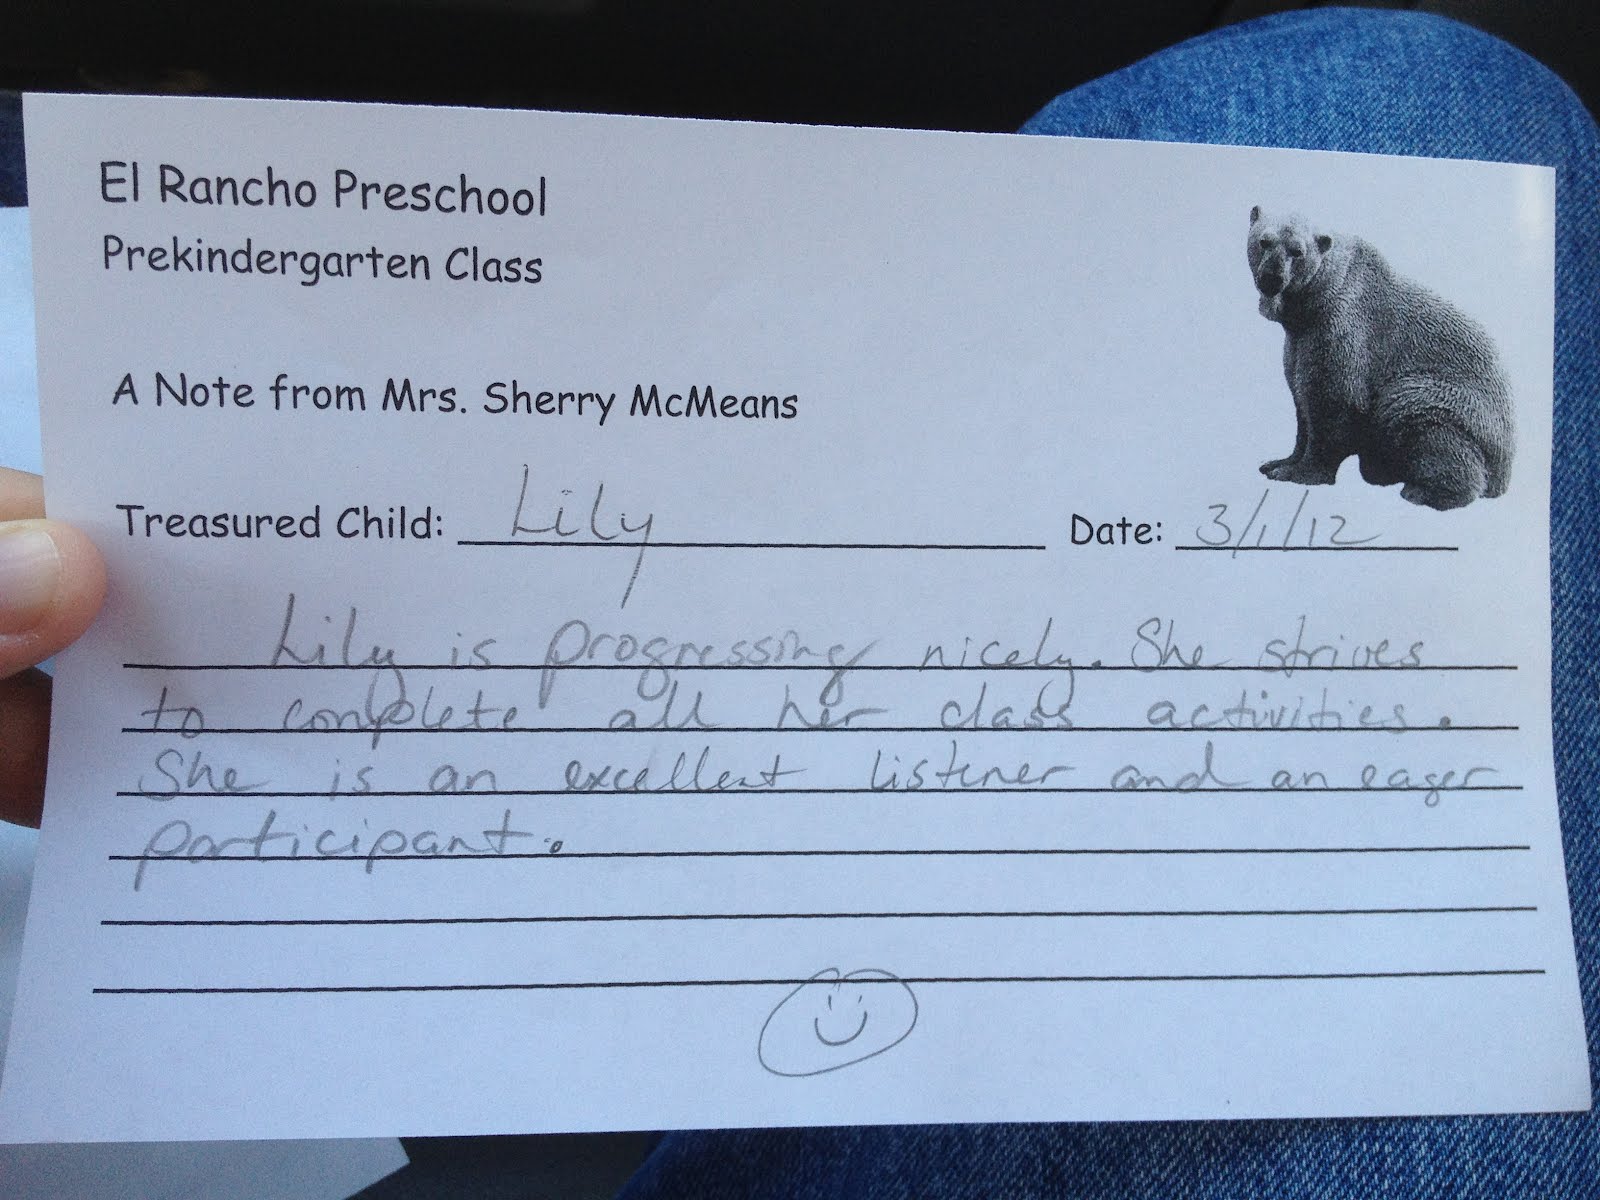 El Rancho Preschool
Prekindergarten Class
A Note from Mrs. Sherry McMeans
Treasured Child: Lily Date: 3/1/12
Lily is progressing nicely. She strives
to complete all her class activities.
She is an excellent listener and an eager
participant.